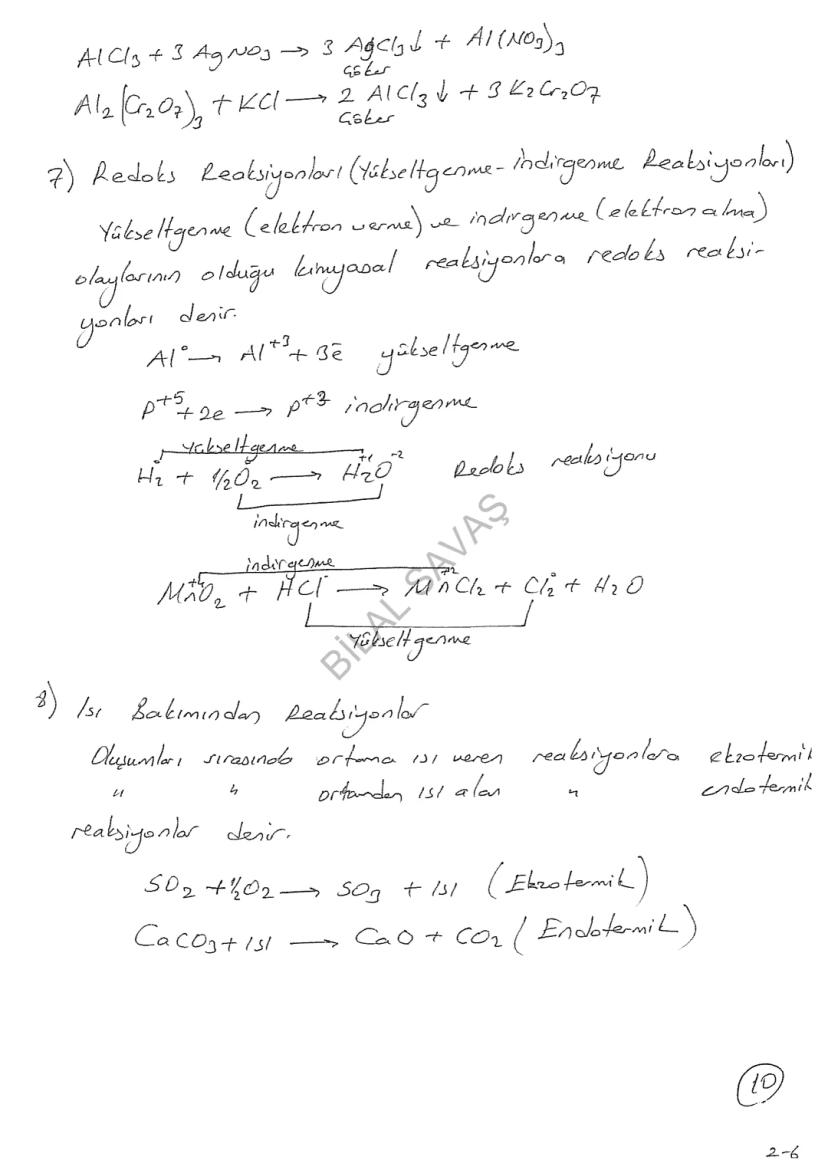 AlCl₃ + 3 AgNO₃ → 3 AgCl₃↓ + Al(NO₃)₃
Çöker
Al₂(Cr₂O₇)₃ + KCl → 2 AlCl₃↓ + 3 K₂Cr₂O₇
Çöker
7) Redoks Reaksiyonları (Yükseltgenme - İndirgenme Reaksiyonları)
Yükseltgenme (elektron verme) ve indirgenme (elektron alma)
olaylarının olduğu kimyasal reaksiyonlara redoks reaksi-
yonları denir.
Al⁰ → Al⁺³ + 3ē yükseltgenme
P⁺⁵ + 2e → P⁺³ indirgenme
Yükseltgenme
H₂⁰ + ½O₂⁰ → H₂⁺¹O⁻² Redoks reaksiyonu
indirgenme
indirgenme
Mn⁺⁴O₂ + HCl⁻ → Mn⁺²Cl₂ + Cl₂⁰ + H₂O
Yükseltgenme
BİLAL SAVAŞ
8) Isı Bakımından Reaksiyonlar
Oluşumları sırasında ortama ısı veren reaksiyonlara ekzotermik
" " ortamdan ısı alan " endotermik
reaksiyonlar denir.
SO₂ + ½O₂ → SO₃ + ısı (Ekzotermik)
CaCO₃ + ısı → CaO + CO₂ (Endotermik)
10
2-6